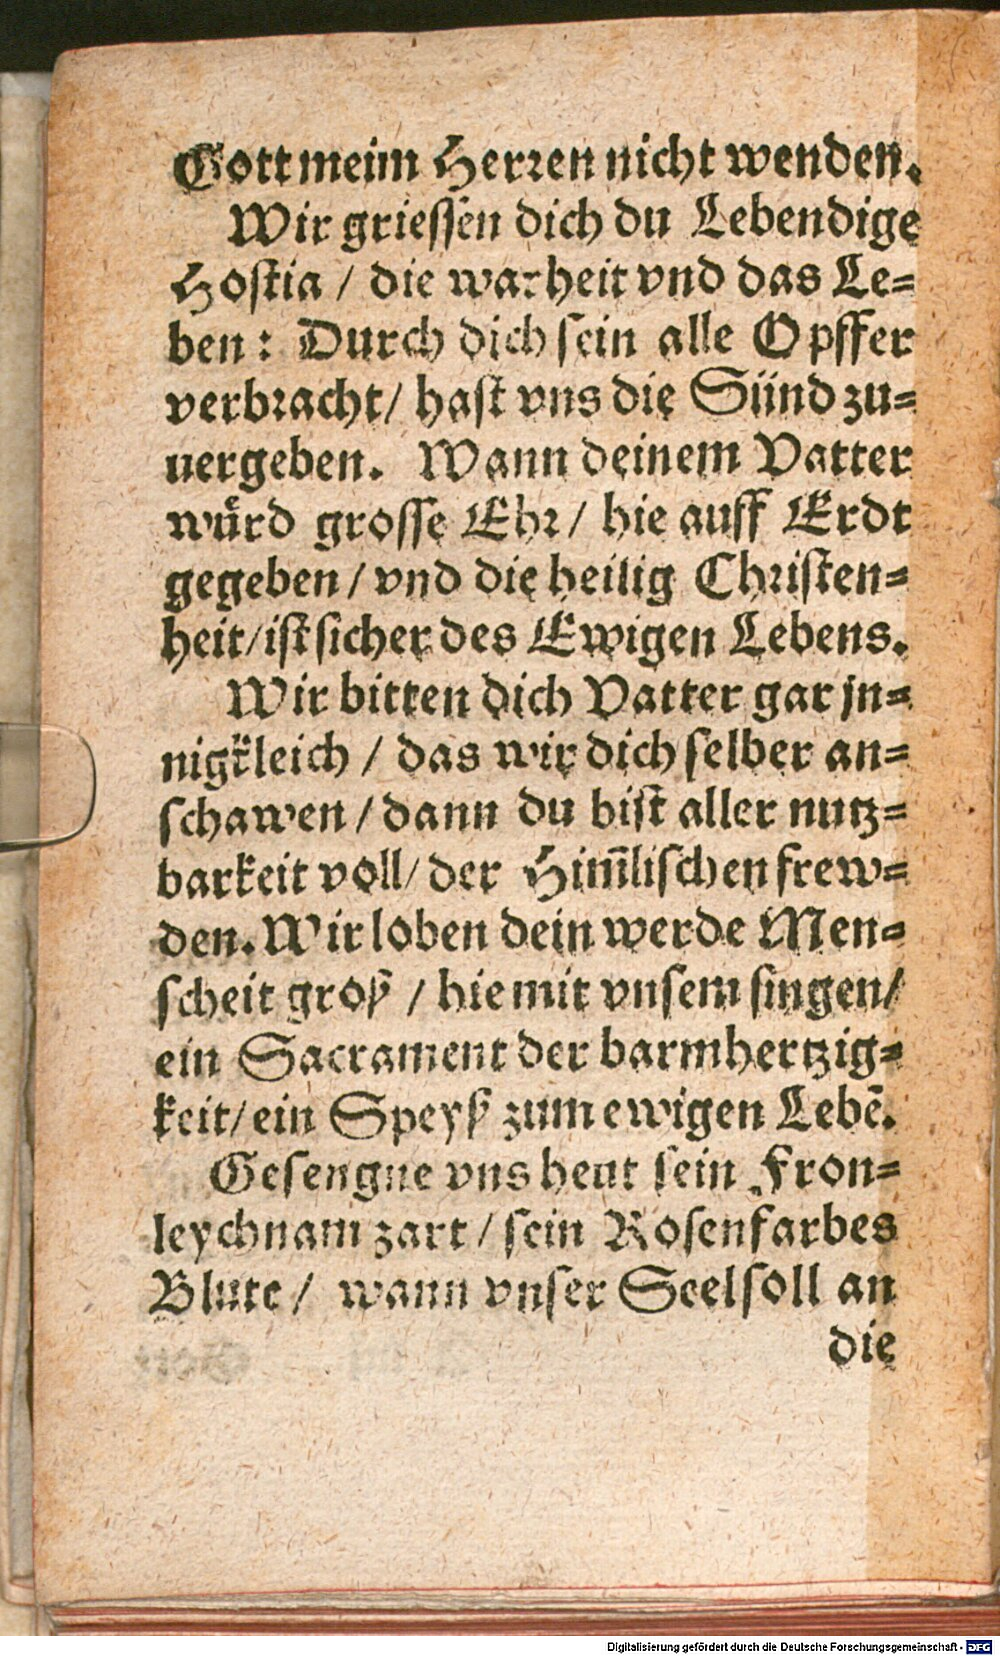 Gott meim Herren nicht wenden.
Wir griessen dich du Lebendige
Hostia / die warheit vnd das Le=
ben : Durch dich sein alle Opffer
verbracht / hast vns die Sünd zu=
uergeben. Wann deinem Vatter
wuͤrd grosse Ehr / hie auff Erdt
gegeben / vnd die heilig Christen=
heit / ist sicher des Ewigen Lebens.
Wir bitten dich Vatter gar jn=
nigkleich / das wir dich selber an=
schawen / dann du bist aller nutz=
barkeit voll / der Him̃lischen frew=
den. Wir loben dein werde Men=
scheit groß / hie mit vnsem singen /
ein Sacrament der barmhertzig=
keit / ein Speyß zum ewigen Lebẽ.
Gesengne vns heut sein Fron=
leychnam zart / sein Rosenfarbes
Blute / wann vnser Seel soll an
die
Digitalisierung gefördert durch die Deutsche Forschungsgemeinschaft - DFG